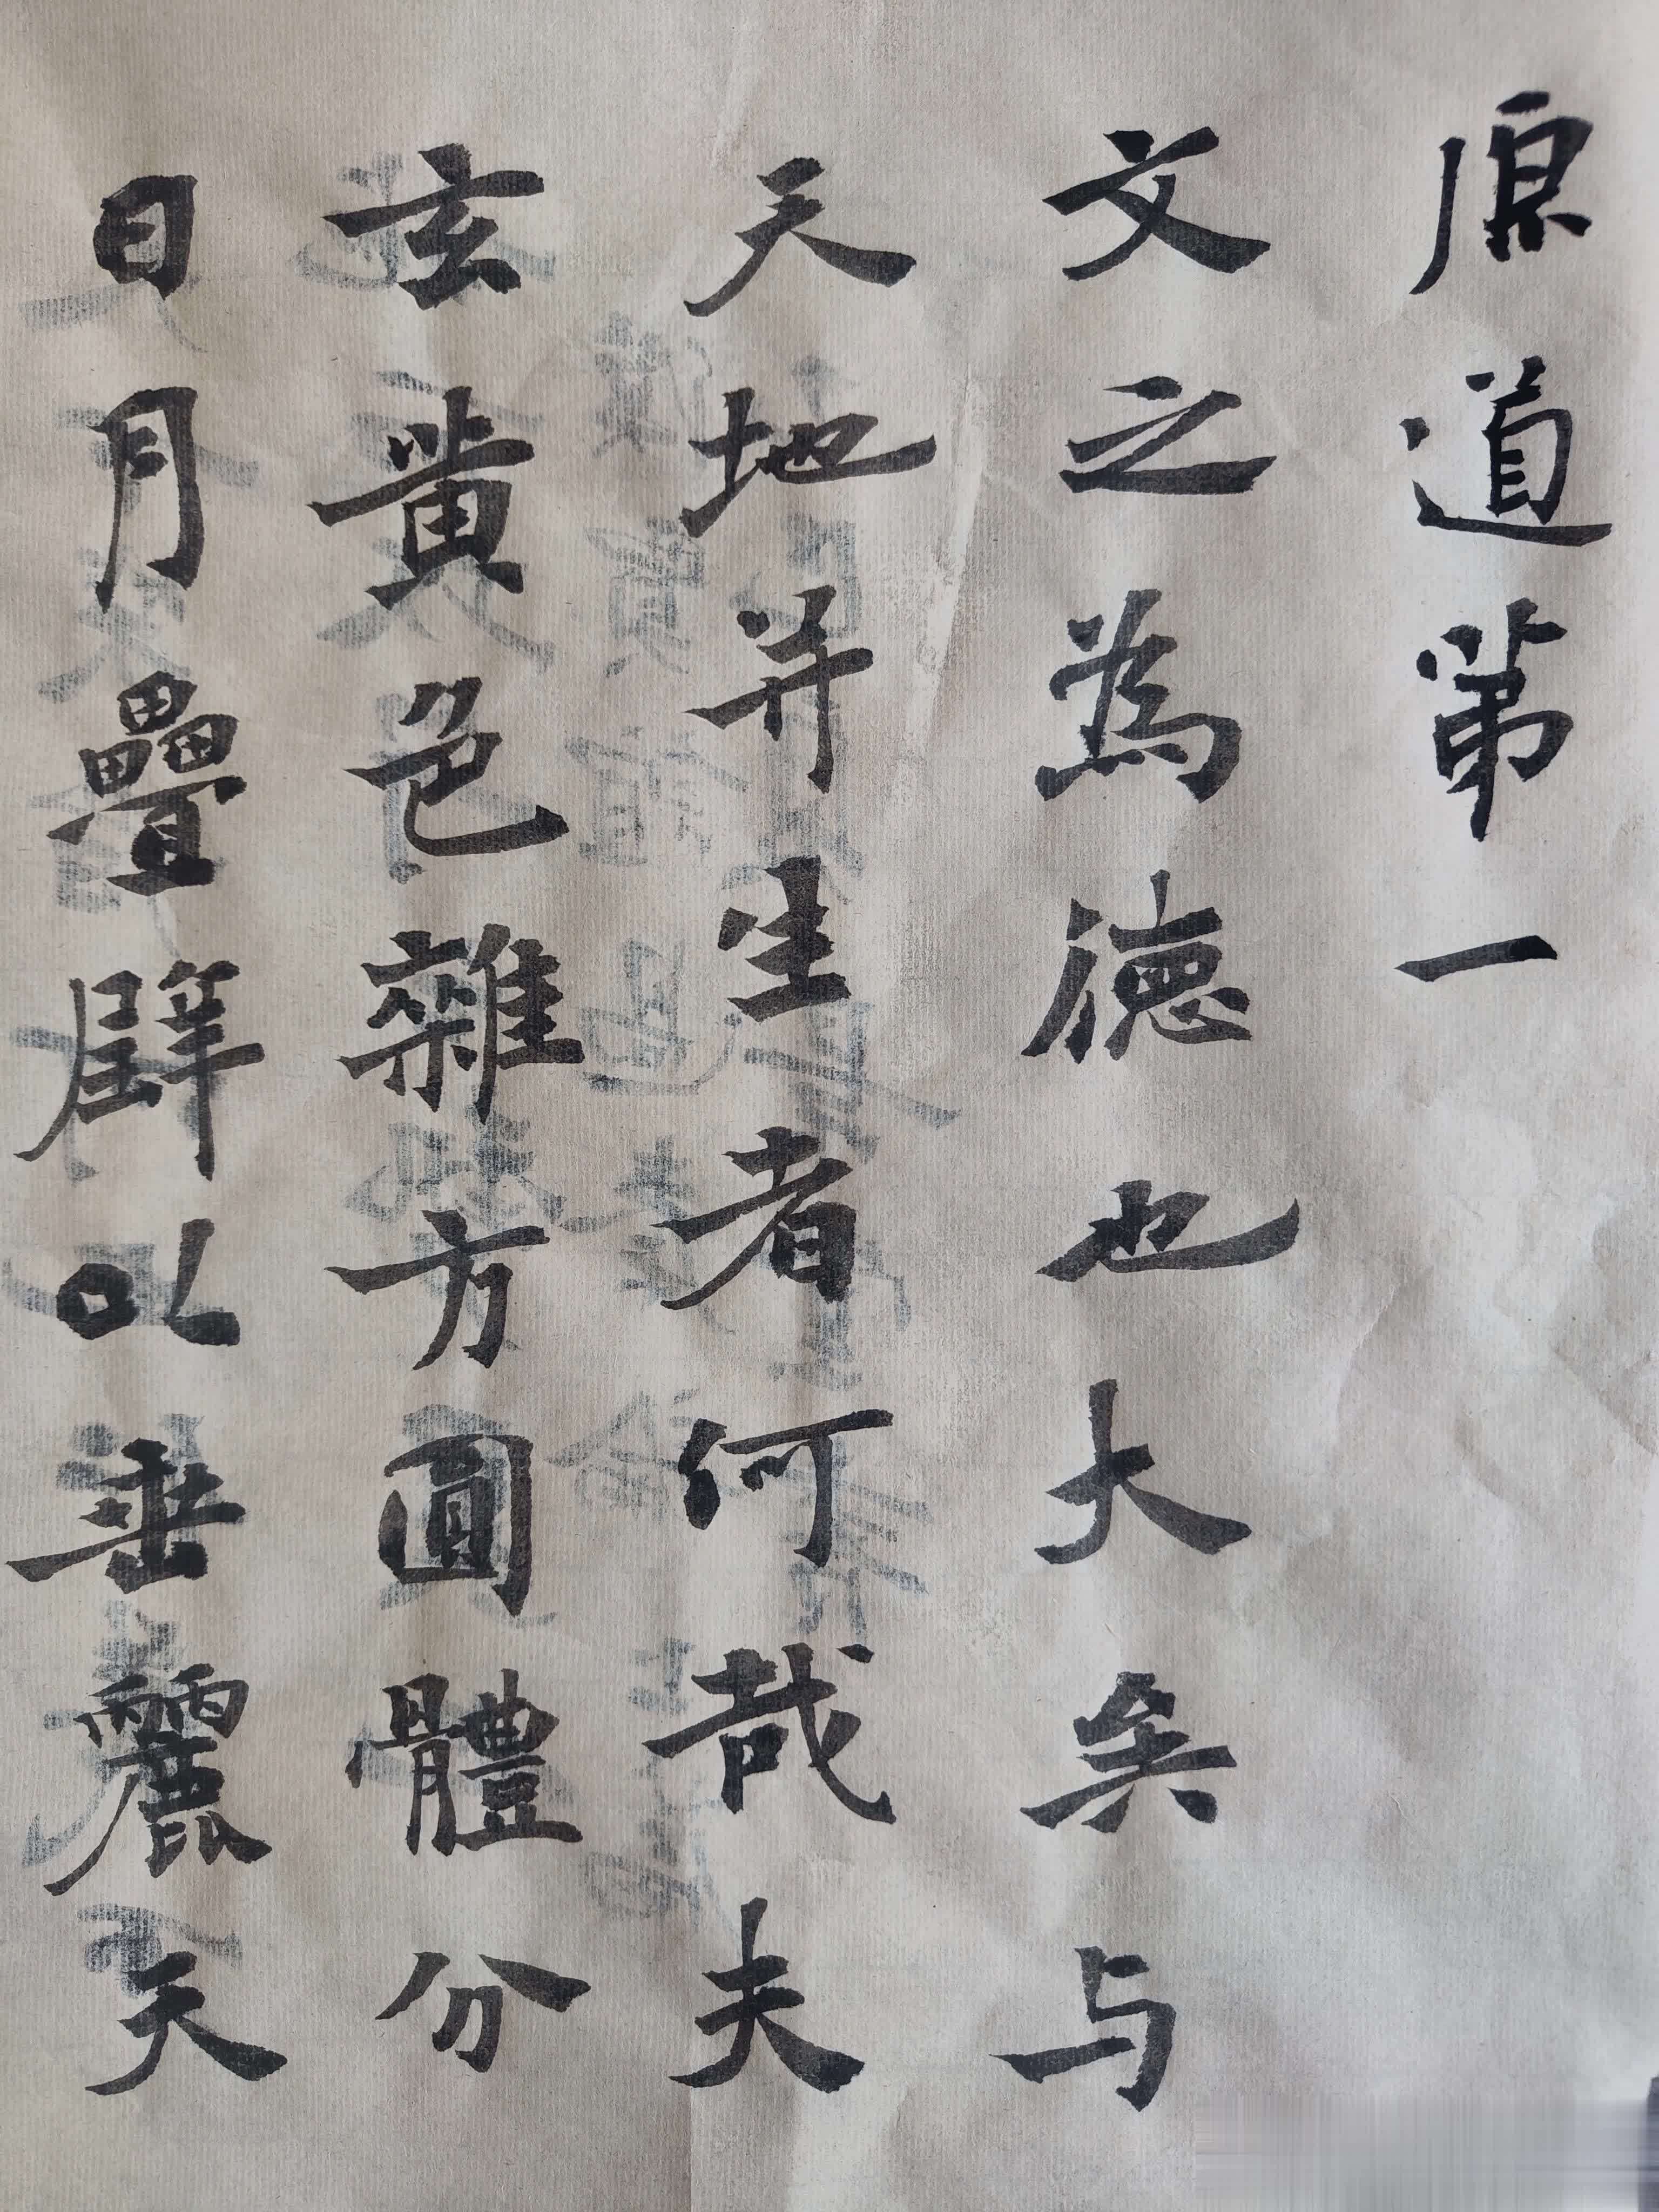 原道第一
文之為德也大矣与
天地并生者何哉夫
玄黄色雜方圓體分
日月疊璧以垂麗天